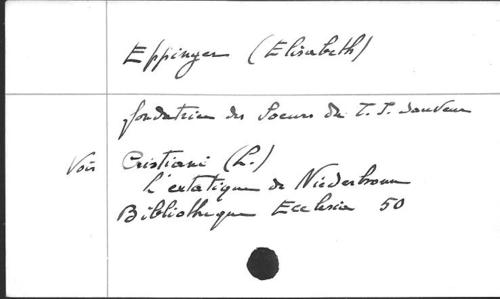 Eppinger (Elisabeth)
fondatrice des Soeurs du T. S. Sauveur
Voir Cristiani (L.)
L'extatique de Niederbronn
Bibliothèque Ecclesia 50